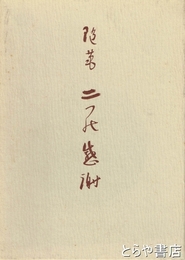 随筆 二つの感謝
とらや書店